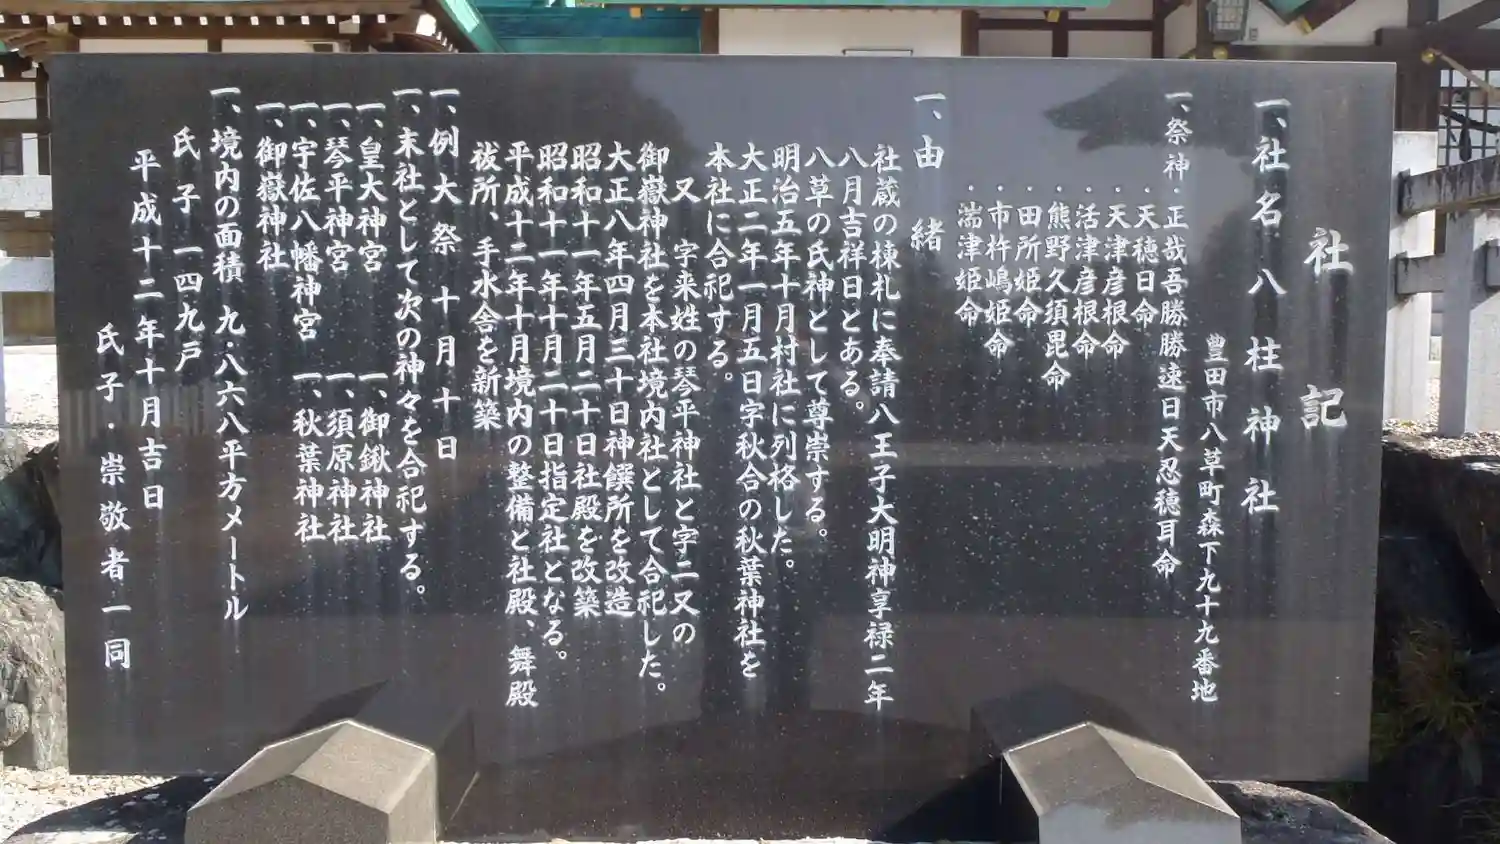 社記
一、社名 八柱神社
豊田市八草町森下九十九番地
一、祭神・正哉吾勝勝速日天忍穂耳命
・天穂日命
・天津彦根命
・活津彦根命
・熊野久須毘命
・田所姫命
・市杵嶋姫命
・湍津姫命
一、由緒
社蔵の棟札に奉請八王子大明神享禄二年
八月吉祥日とある。
八草の氏神として尊崇する。
明治五年十月村社に列格した。
大正二年一月五日字秋合の秋葉神社を
本社に合祀する。
又 字来姓の琴平神社と字二又の
御嶽神社を本社境内社として合祀した。
大正八年四月三十日神饌所を改造
昭和十一年五月二十日社殿を改築
昭和十一年十月二十日指定社となる。
平成十二年十月境内の整備と社殿、舞殿
祓所、手水舎を新築
一、例大祭 十月十日
一、末社として次の神々を合祀する。
一、皇大神宮 一、御鍬神社
一、琴平神宮 一、須原神社
一、宇佐八幡神宮 一、秋葉神社
一、御嶽神社
一、境内の面積 九・八六八平方メートル
氏子 一四九戸
平成十二年十月吉日
氏子・崇敬者一同